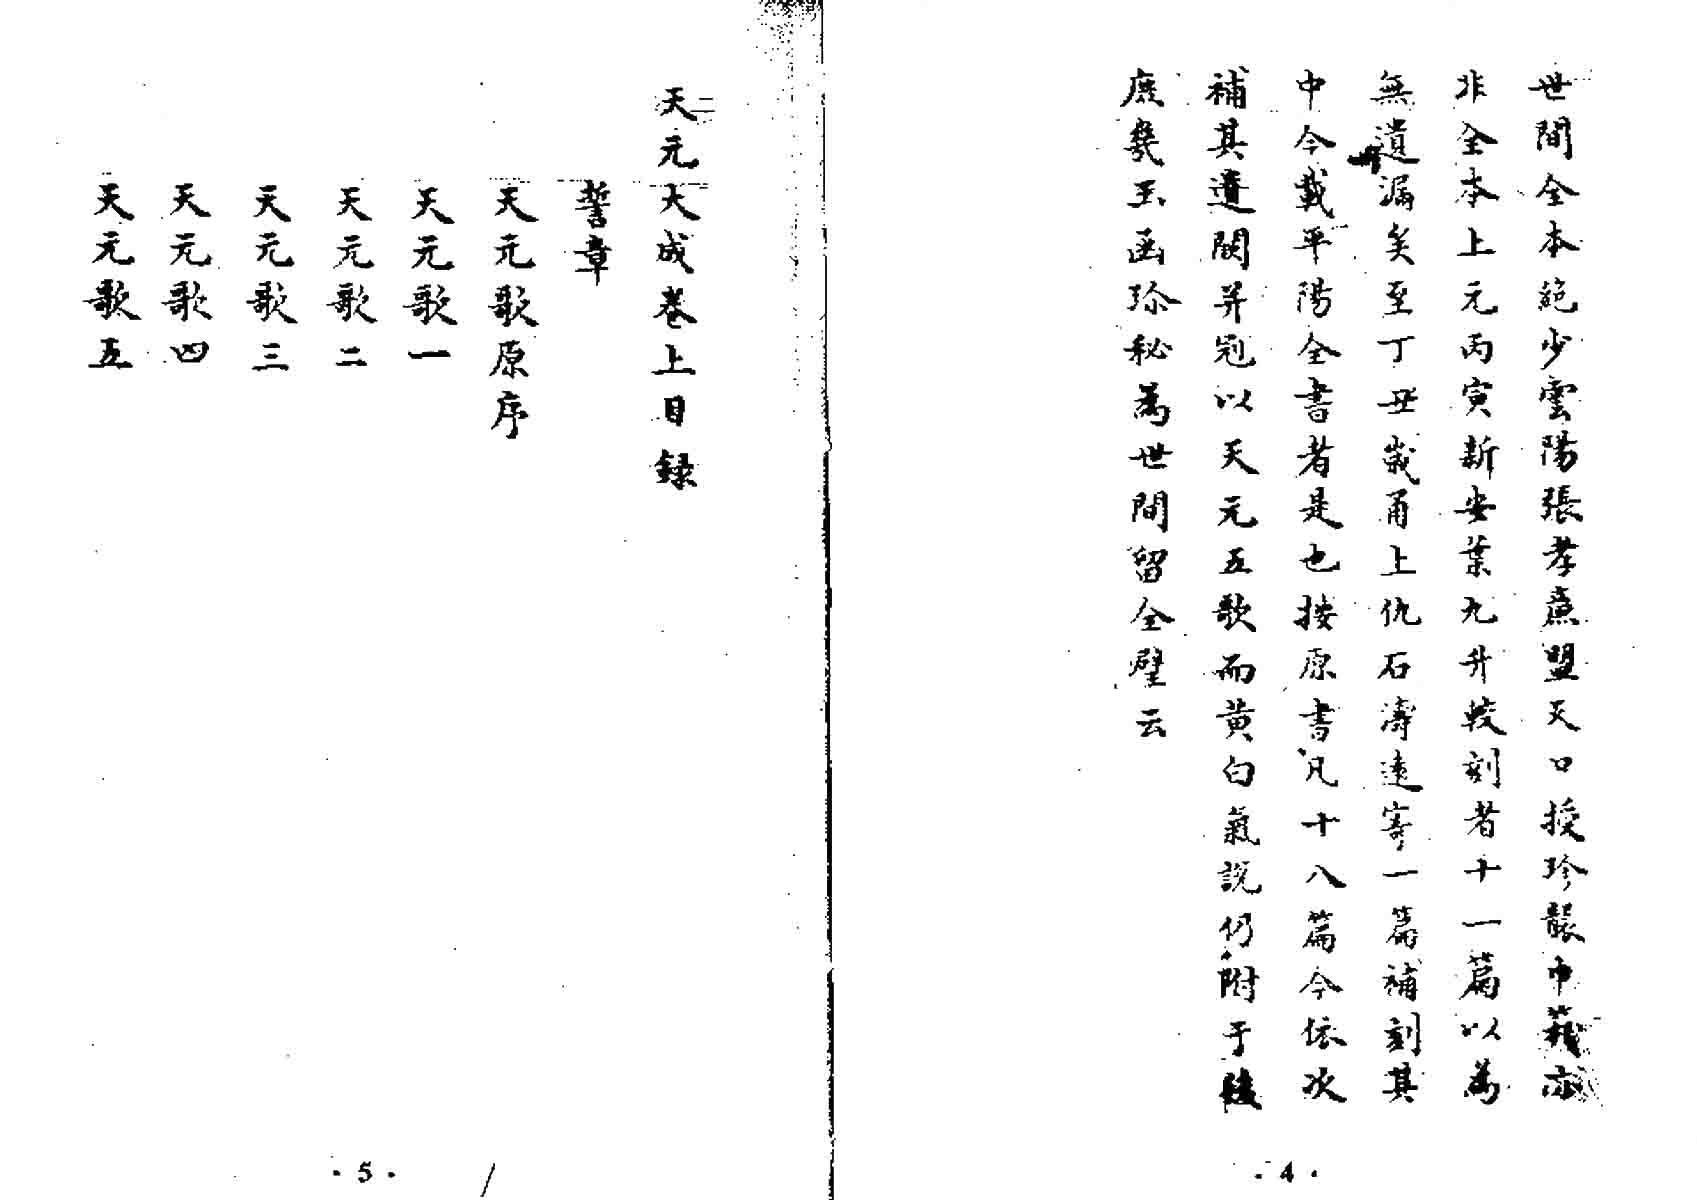 世間全本絕少雲陽張孝廉盟天口授珍藏巾箱亦
非全本上元丙寅新安葉九升較刻者十一篇以為
無遺漏矣至丁丑歲甬上仇石濤遠寄一篇補刻其
中今載平陽全書者是也按原書凡十八篇今依次
補其遺闕并冠以天元五歌而黃白氣說仍附于後
庶幾玉函珍秘為世間留全璧云
· 4 ·
天元大成卷上目録
誓章
天元歌原序
天元歌一
天元歌二
天元歌三
天元歌四
天元歌五
· 5 ·